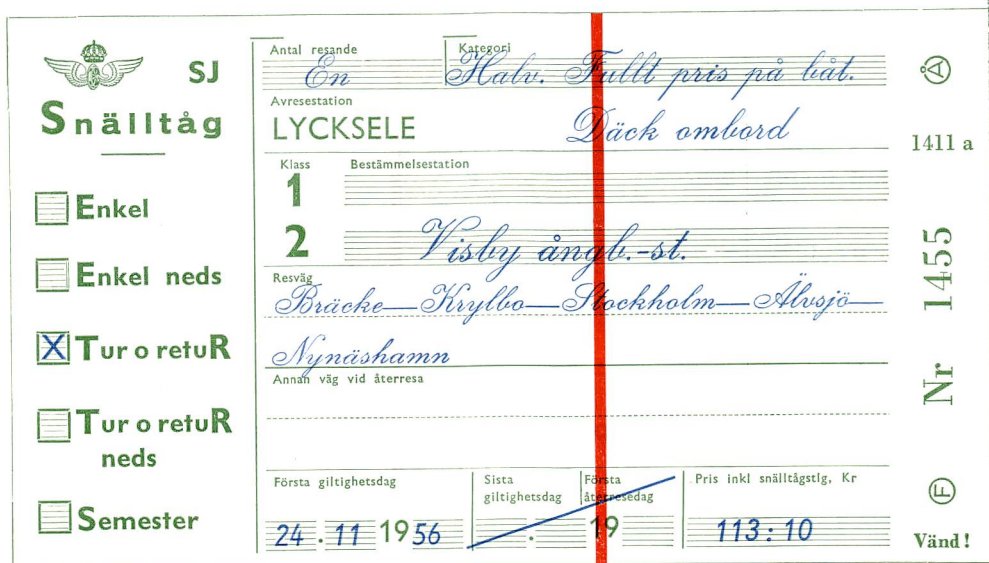 SJ
Snälltåg
Enkel
Enkel neds
X Tur o retuR
Tur o retuR
neds
Semester
Antal resande
En
Kategori
Halv. Fullt pris på båt.
Avresestation
LYCKSELE
Däck ombord
Klass
1
2
Bestämmelsestation
Visby ångb.-st.
Resväg
Bräcke—Krylbo—Stockholm—Älvsjö—
Nynäshamn
Annan väg vid återresa
Första giltighetsdag
24 . 11 1956
Sista
giltighetsdag
.
Första
återresedag
19
Pris inkl snälltågstlg, Kr
113:10
Å
1411 a
Nr 1455
F
Vänd!